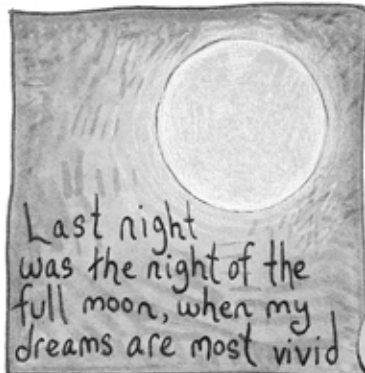 Last night
was the night of the
full moon, when my
dreams are most vivid